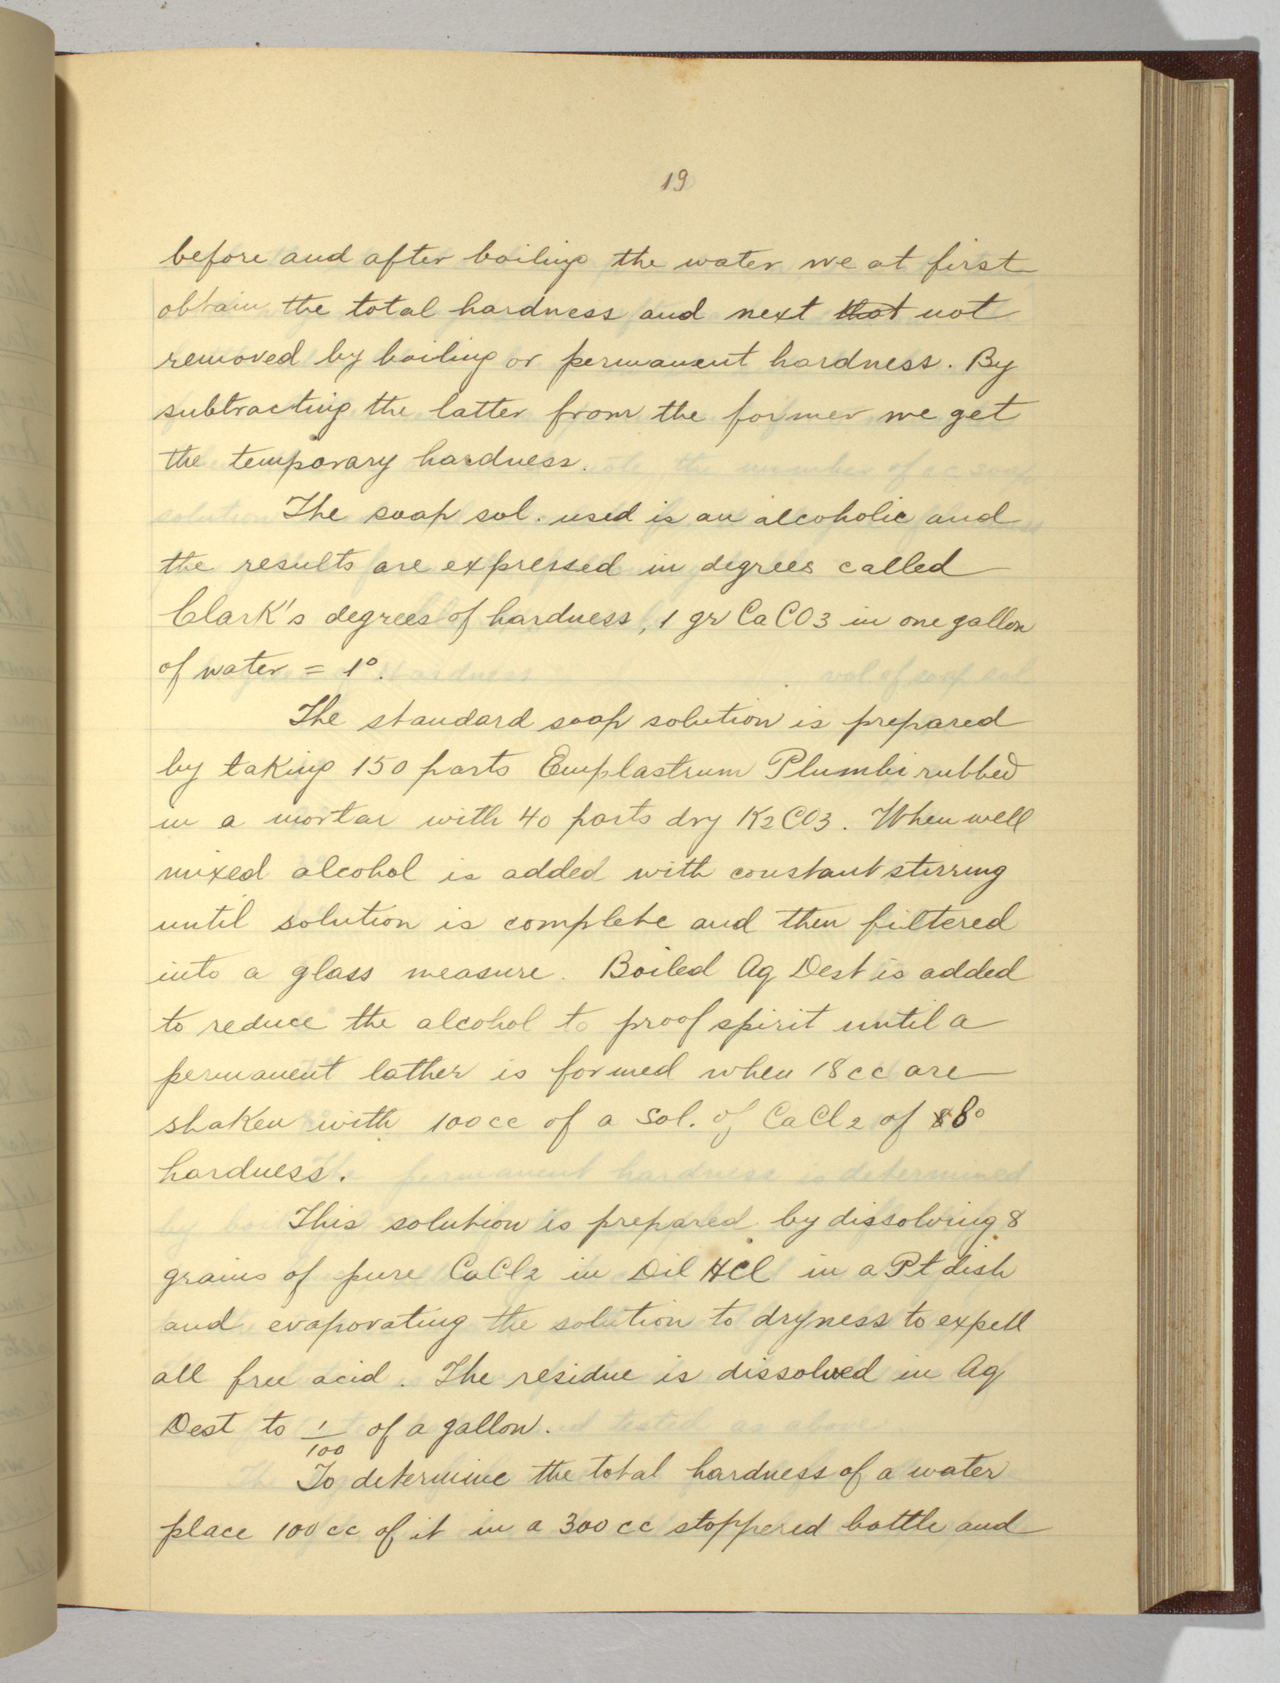 19
before and after boiling the water we at first
obtain the total hardness and next that not
removed by boiling or permanent hardness. By
subtracting the latter from the former we get
the temporary hardness.
The soap sol. used is an alcoholic and
the results are expressed in degrees called
Clark's degrees of hardness, 1 gr CaCO3 in one gallon
of water = 1°.
The standard soap solution is prepared
by taking 150 parts Emplastrum Plumbi rubbed
in a mortar with 40 parts dry K2CO3. When well
mixed alcohol is added with constant stirring
until solution is complete and then filtered
into a glass measure. Boiled Aq Dest is added
to reduce the alcohol to proof spirit until a
permanent lather is formed when 18cc are
shaken with 100cc of a sol. of CaCl2 of 8°
hardness.
This solution is prepared by dissolving 8
grains of pure CaCl2 in Dil HCl in a Pt dish
and evaporating the solution to dryness to expell
all free acid. The residue is dissolved in Aq
Dest to 1/100 of a gallon.
To determine the total hardness of a water
place 100cc of it in a 300cc stoppered bottle and